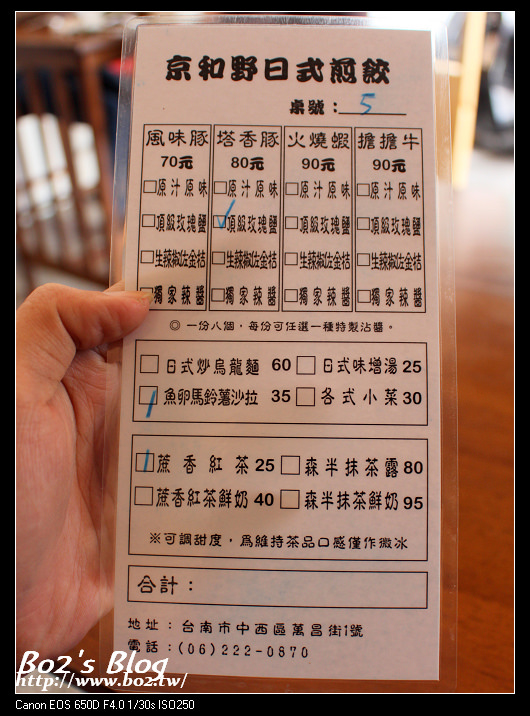 京和野日式煎餃
桌號：5
風味豚 塔香豚 火燒蝦 擔擔牛
70元 80元 90元 90元
□原汁原味 □原汁原味 □原汁原味 □原汁原味
□頂級玫瑰鹽 ☑頂級玫瑰鹽 □頂級玫瑰鹽 □頂級玫瑰鹽
□生辣椒佐金桔 □生辣椒佐金桔 □生辣椒佐金桔 □生辣椒佐金桔
□獨家辣醬 □獨家辣醬 □獨家辣醬 □獨家辣醬
◎ 一份八個，每份可任選一種特製沾醬。
□日式炒烏龍麵 60 □日式味增湯 25
☑魚卵馬鈴薯沙拉 35 □各式小菜 30
☑蔗香紅茶 25 □森半抹茶露 80
□蔗香紅茶鮮奶 40 □森半抹茶鮮奶 95
※可調甜度，為維持茶品口感僅作微冰
合計：
地址：台南市中西區萬昌街1號
電話：(06)222-0870
Bo2's Blog
http://www.bo2.tw/
Canon EOS 650D F4.0 1/30s ISO250